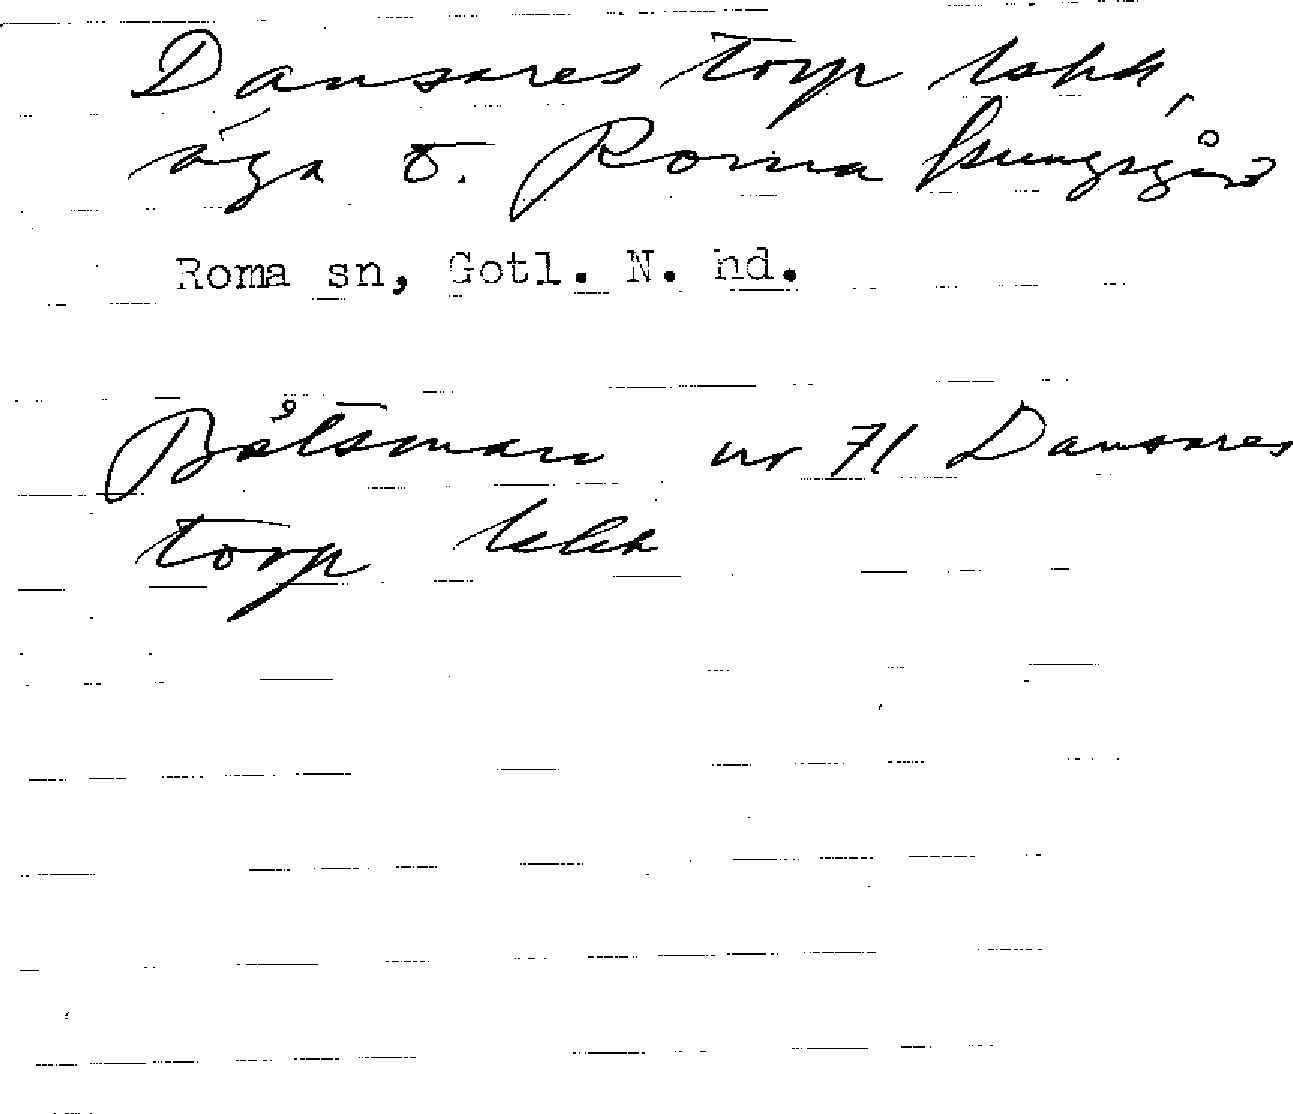 Dansares torp
äga t. Roma kungsgård
Roma sn, Gotl. N. hd.
Båtsman nr 71 Dansares
torp